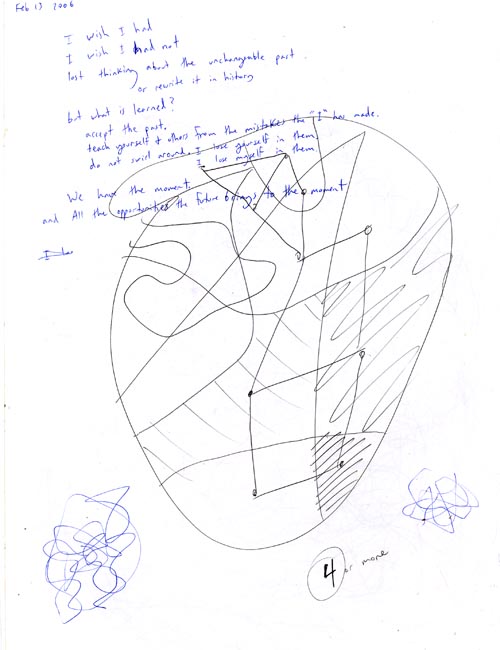 Feb 13 2006
I wish I had
I wish I had not
lost thinking about the unchangeable past
or rewrite it in history
but what is learned?
accept the past.
teach yourself & others from the mistakes the "I" has made.
do not swirl around. I lose yourself in them.
I lose myself in them.
We have the moment.
and All the opportunities the future brings to the moment
I
4 or more